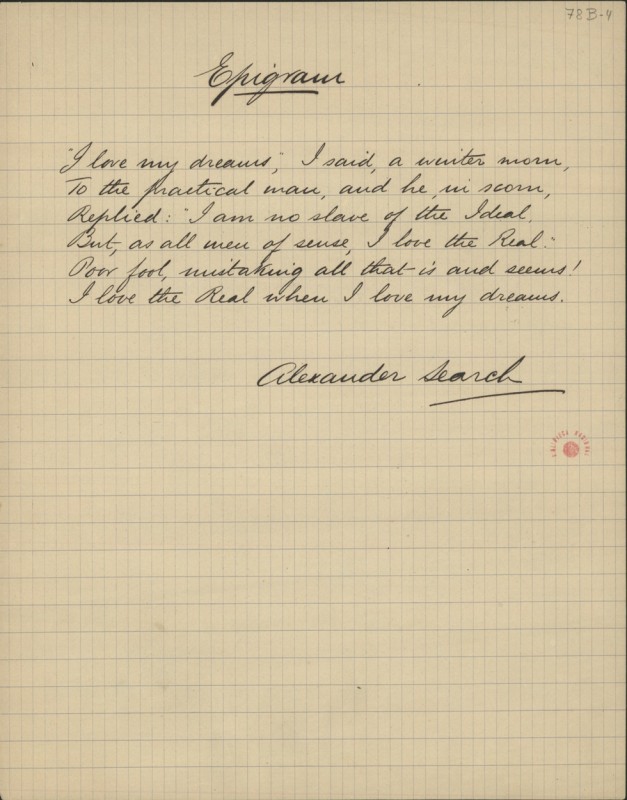 78B-4
Epigram
"I love my dreams", I said, a winter morn,
To the practical man, and he, in scorn,
Replied: "I am no slave of the Ideal,
But, as all men of sense, I love the Real."
Poor fool, mistaking all that is and seems!
I love the Real when I love my dreams.
Alexander Search
BIBLIOTECA NACIONAL